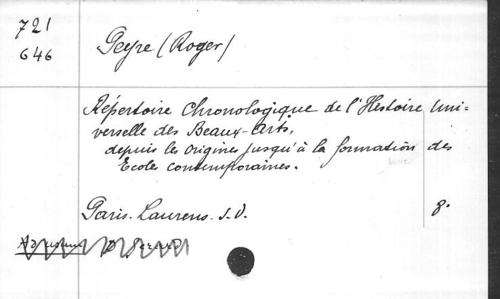 721
646
Peyre (Roger)
Répertoire Chronologique de l'Histoire Uni-
verselle des Beaux-Arts,
depuis les origines jusqu'à la formation des
Ecoles contemporaines.
Paris. Laurens. S.D. 8°